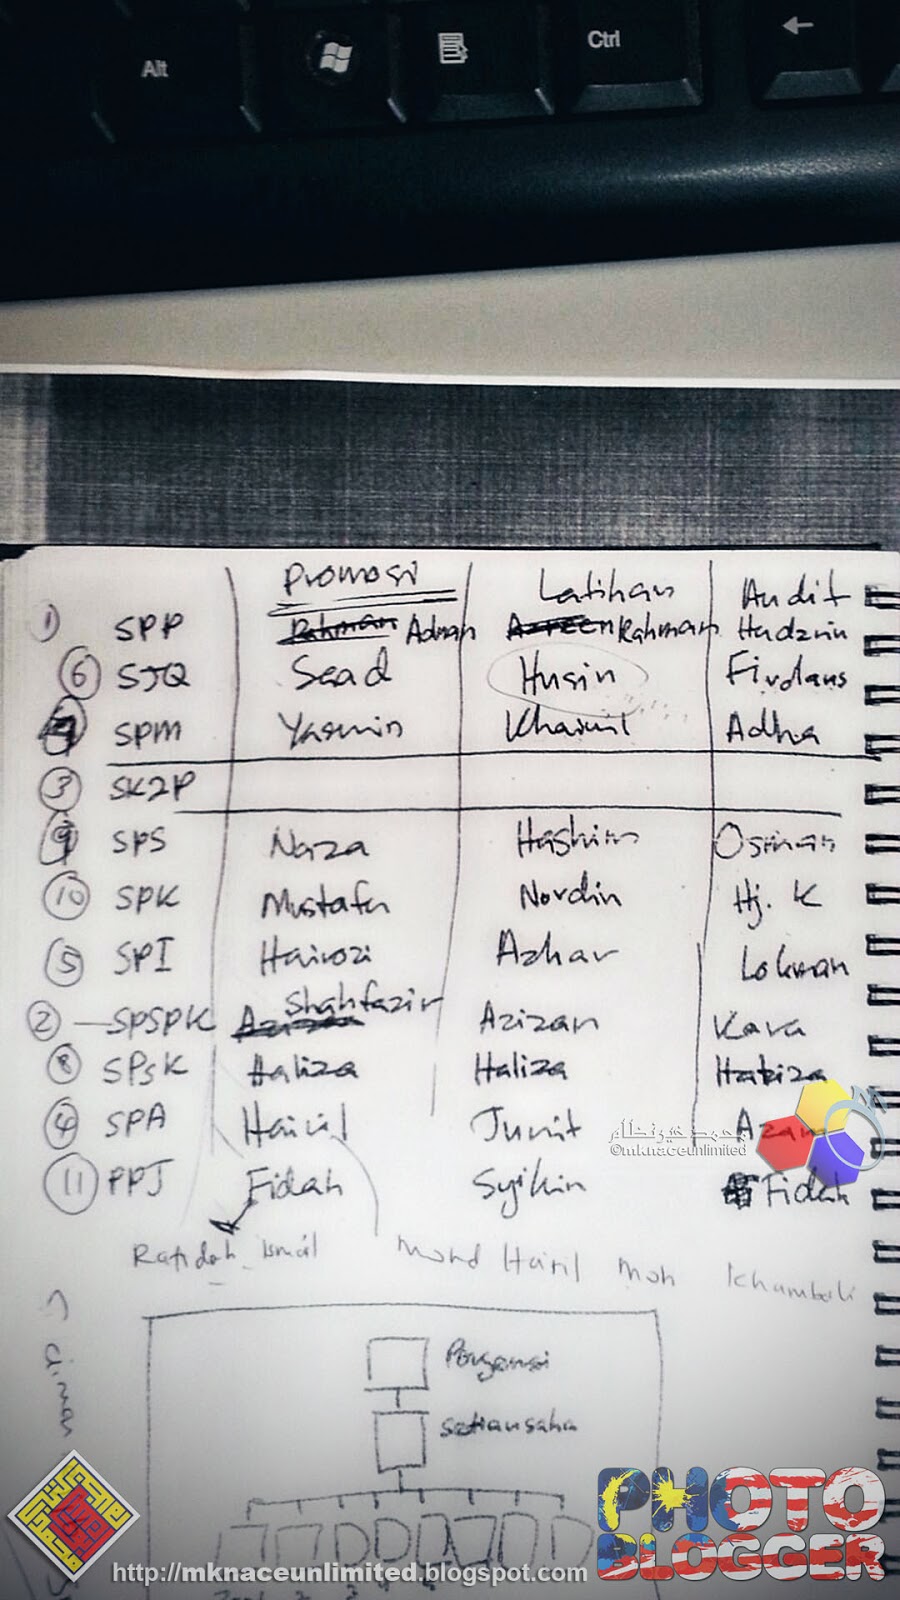 Alt Ctrl
Promosi Latihan Audit
1 SPP Rahman Adnan Azreen Rahman Hadzrin
6 SJQ Saad Husin Firdaus
SPM Yasmin Khairil Adha
3 SK2P
9 SPS Naza Hashim Osman
10 SPK Mustafa Nordin Hj. K
5 SPI Hairozi Azhar Lokman
2 SPSPK Shahfazir Azizan
8 SPSK Haliza Haliza Haliza
4 SPA Hairil Junit Azam
محمد خيرنظام
©mknaceunlimited
11 PPJ Fidah Syikin Fidah
Rafidah Ismail Mohd Hairil Moh Khambali
Pengerusi
Setiausaha
PHOTO
BLOGGER
http://mknaceunlimited.blogspot.com